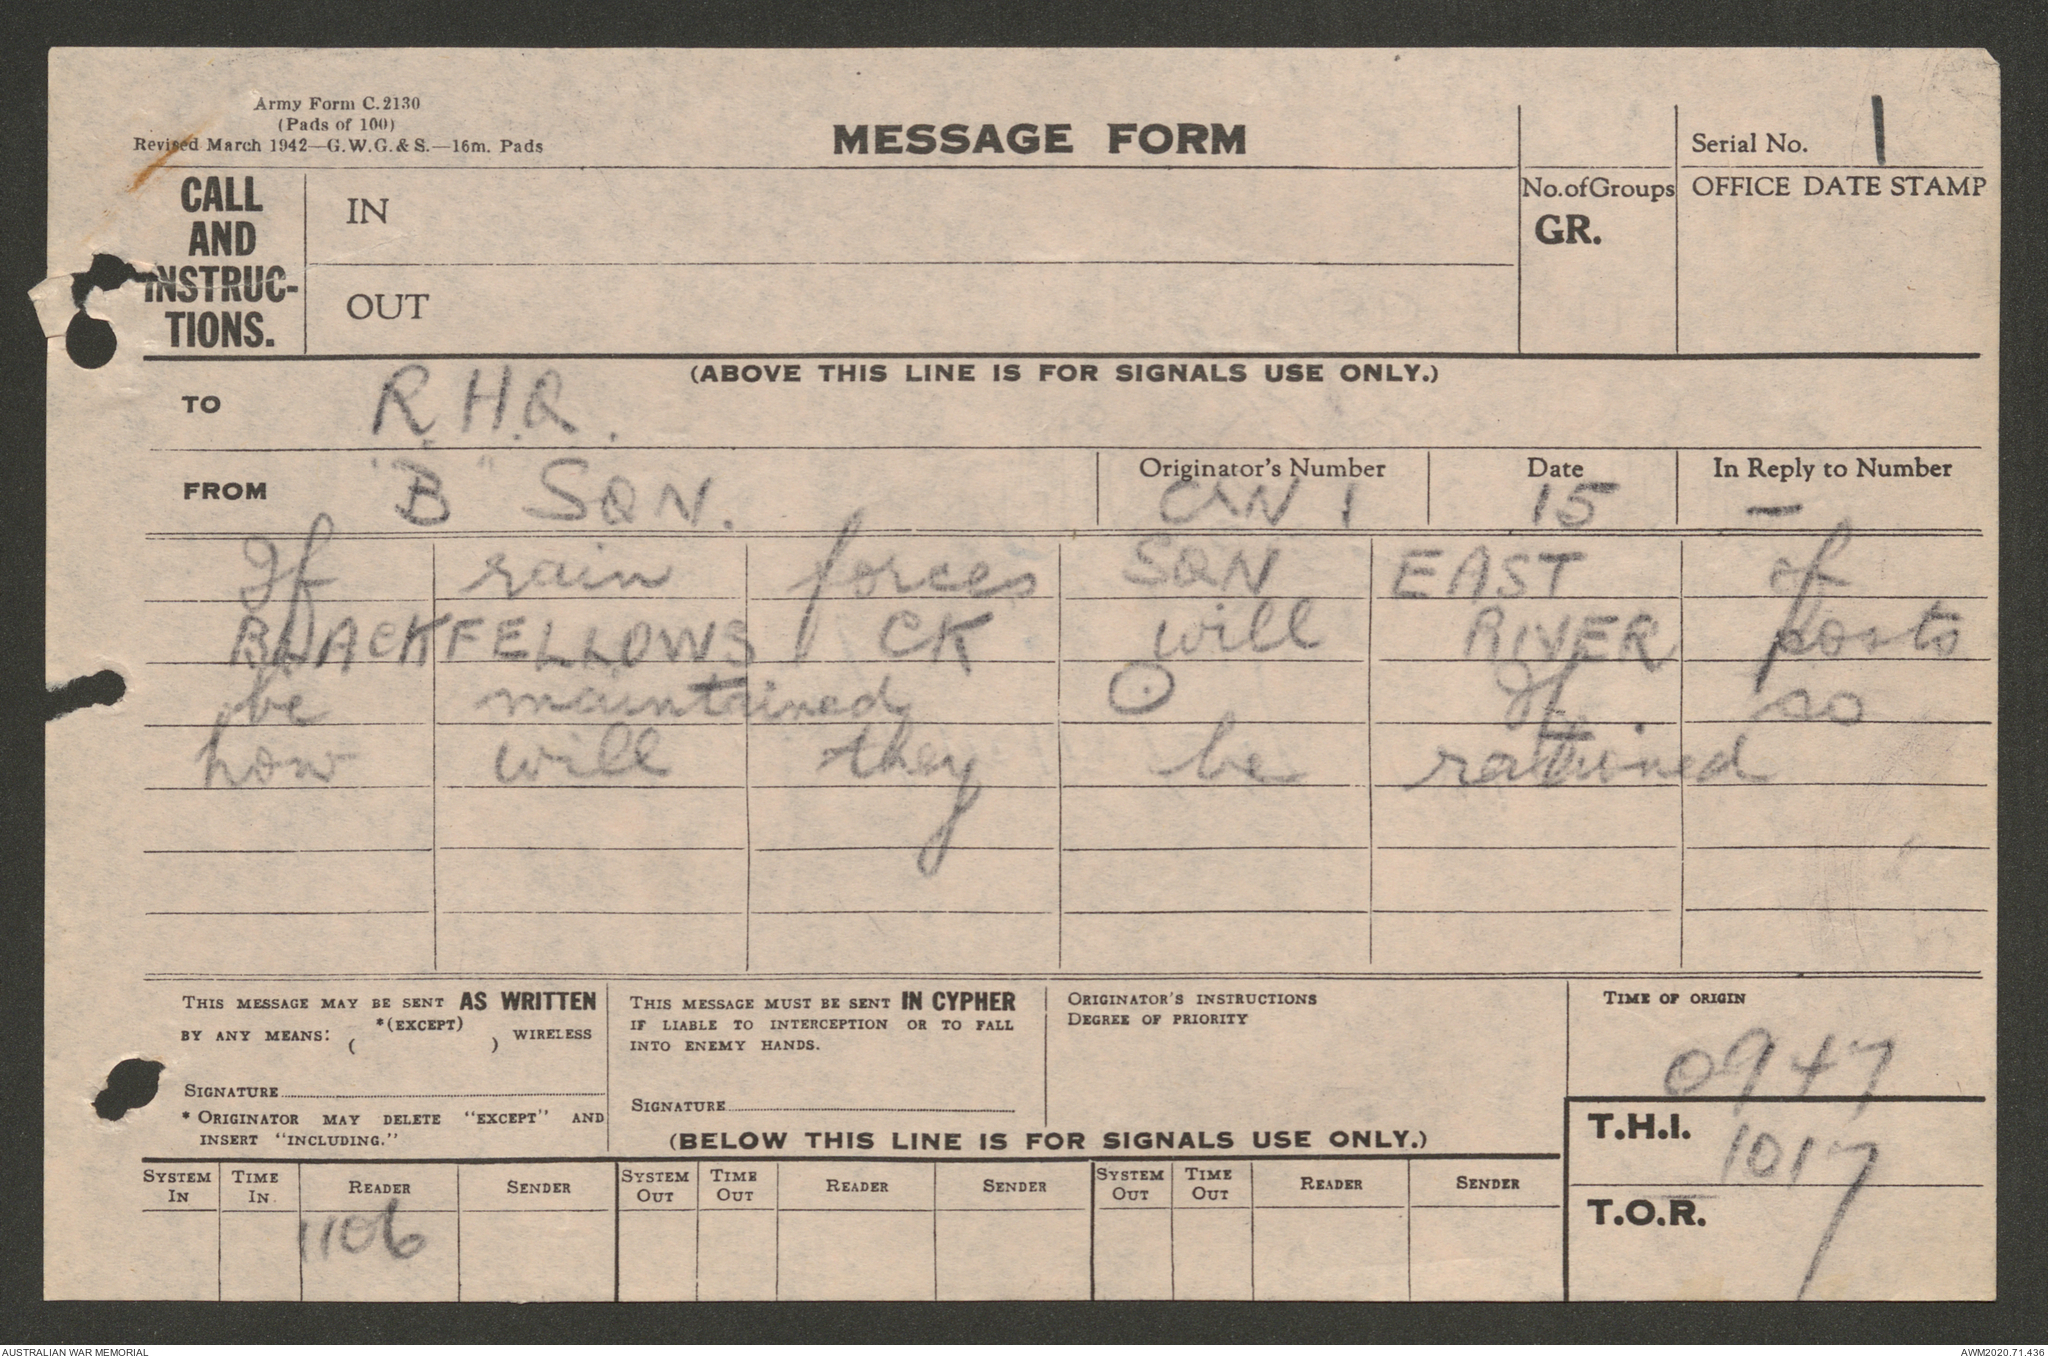 Army Form C.2130
(Pads of 100)
Revised March 1942—G.W.G.&S.—16m. Pads
MESSAGE FORM
Serial No. 1
CALL AND INSTRUC-TIONS.
IN
OUT
No. of Groups
GR.
OFFICE DATE STAMP
(ABOVE THIS LINE IS FOR SIGNALS USE ONLY.)
TO R.H.Q.
FROM "B" SQN.
Originator's Number
Date
In Reply to Number
QN 1
15
—
If rain forces SQN EAST of
BLACKFELLOWS CK will RIVER posts
be maintained ⊙ If so
how will they be rationed
THIS MESSAGE MAY BE SENT AS WRITTEN
BY ANY MEANS: *(EXCEPT) ( ) WIRELESS
SIGNATURE
* ORIGINATOR MAY DELETE "EXCEPT" AND
INSERT "INCLUDING."
THIS MESSAGE MUST BE SENT IN CYPHER
IF LIABLE TO INTERCEPTION OR TO FALL
INTO ENEMY HANDS.
SIGNATURE
ORIGINATOR'S INSTRUCTIONS
DEGREE OF PRIORITY
TIME OF ORIGIN
0947
(BELOW THIS LINE IS FOR SIGNALS USE ONLY.)
T.H.I. 1017
T.O.R.
SYSTEM IN TIME IN. READER SENDER SYSTEM OUT TIME OUT READER SENDER SYSTEM OUT TIME OUT READER SENDER
1106
AUSTRALIAN WAR MEMORIAL
AWM2020.71.436